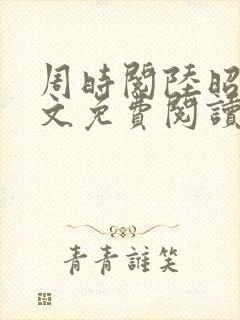 周時閱陸昭
文免費閱讀
青青誰笑